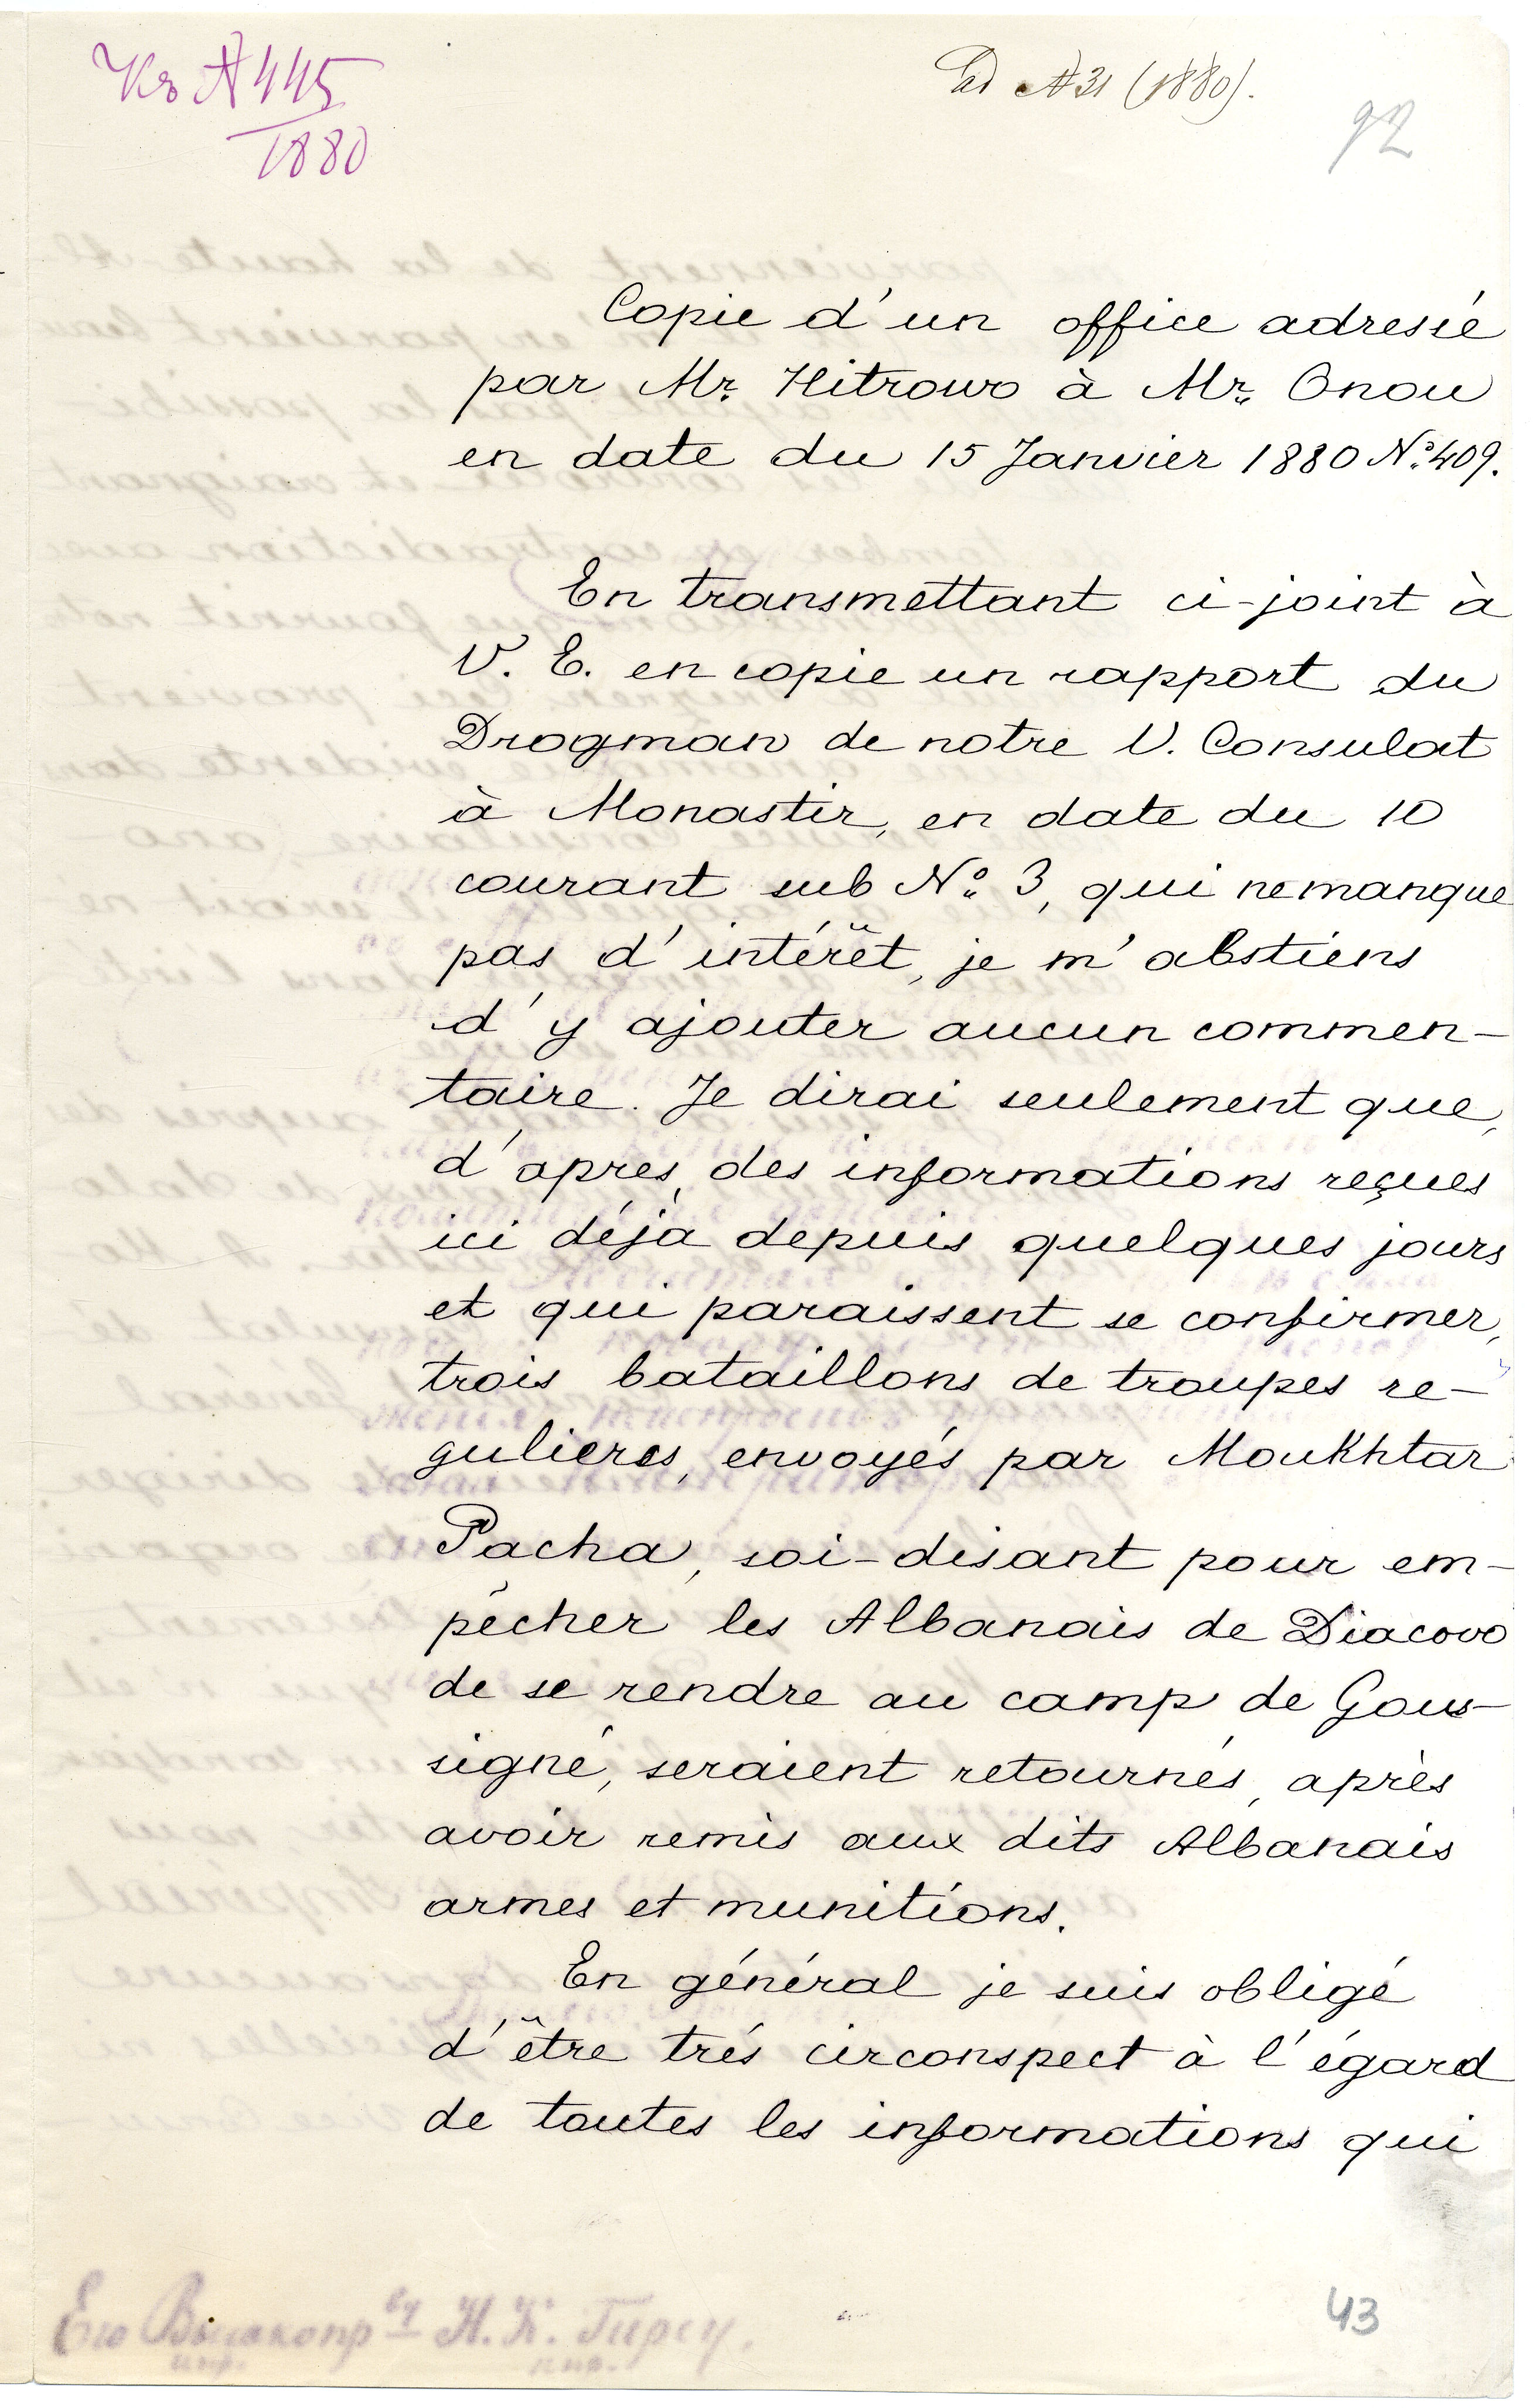 Къ № 445
1880
ad № 31 (1880).
92
Copie d'un office adressé
par Mr. Hitrowo à Mr. Onou
en date du 15 Janvier 1880 No. 409.
En transmettant ci-joint à
V. E. en copie un rapport du
Drogman de notre V. Consulat
à Monastir, en date du 10
courant sub No. 3, qui ne manque
pas d'intérêt, je m'abstiens
d'y ajouter aucun commen-
taire. Je dirai seulement que,
d'apres, des informations reçues
ici déjà depuis quelques jours
et qui paraissent se confirmer,
trois bataillons de troupes re-
gulieres, envoyés par Moukhtar
Pacha, soi-disant pour em-
pêcher les Albanais de Diacovo
de se rendre au camp de Gous-
signé, seraient retournés, après
avoir remis aux dits Albanais
armes et munitions.
En général je suis obligé
d'être trés circonspect à l'égard
de toutes les informations qui
Его Высокопр-ву Н. К. Гирсу.
43